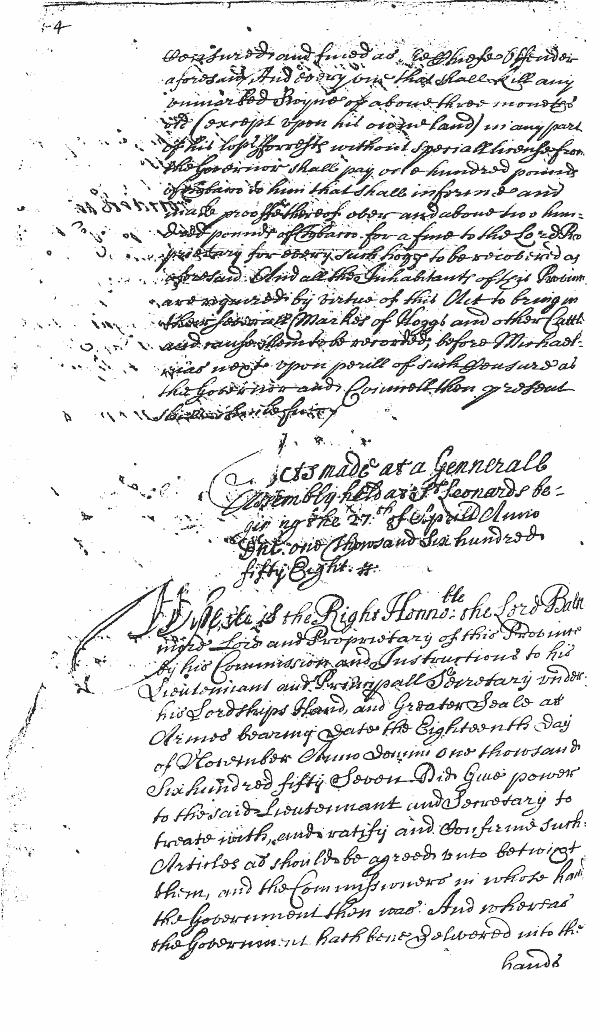 4
Censured and fined as Chiefe Offender
aforesaid, And every one that shall kill any
unmarked Swyne of above three moneths
old (except upon his owne land) in any part
of his lopps fforrests without speciall license from
the Governor shall pay one hundred pounds
of Tobacco to him that shall informe and
make prooffe thereof over and above two hun-
dred pounds of Tobacco for a fine to the Lord Pro
prietary for every such hogg to be recovered as
aforesaid. And all the Inhabitants of this Province
are required by virtue of this Act to bring in
their severall Markes of Hoggs and other Cattle
and cause them to be recorded before Michael-
mas next upon perill of such Censure as
the Governor and Councell then present
shall
Acts made at a Gennerall
Assembly held at St Leonards be-
gining the 27th of Aprill Anno
Dni. one thousand Six hundred
fifty Eight.
Whereas the Right Honnoble: the Lord Balti
more Lord and Proprietary of this Province
by his Commission and Instructions to his
Lieutennant and Principall Secretary under
his Lordships Hand, and Greater Seale at
Armes bearing date the Eighteenth day
of November Anno Domini one thousand
Six hundred fifty Seven Did Give power
to the said Lieutennant and Secretary to
treate with, and ratify and Confirme such
Articles as should be agreed unto betwixt
them, and the Commissioners in whose hands
the Government then was. And whereas
the Government hath bene delivered into the
hands